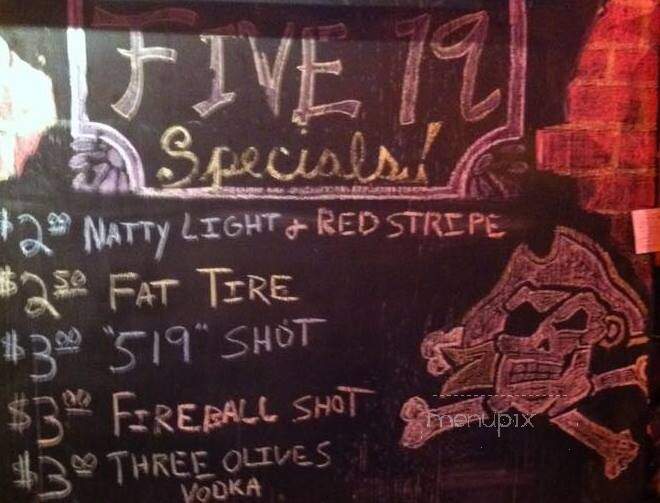 FIVE 19
Specials!
$2.00 NATTY LIGHT & RED STRIPE
$2.50 FAT TIRE
$3.00 "519" SHOT
$3.00 FIREBALL SHOT
$3.00 THREE OLIVES
VODKA
menupix